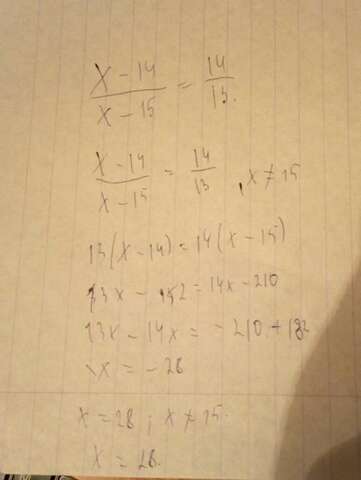 x - 14 / x - 15 = 14 / 13.
x - 14 / x - 15 = 14 / 13 , x ≠ 15
13(x - 14) = 14(x - 15)
13x - 182 = 14x - 210
13x - 14x = -210 + 182
-x = -28
x = 28 ; x ≠ 15.
x = 28.